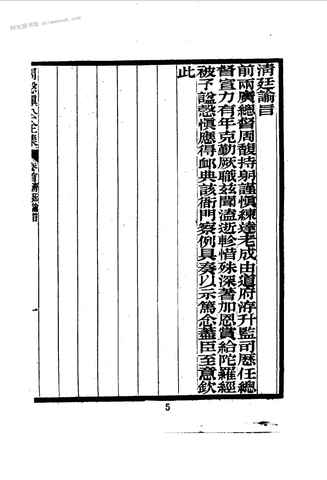 清廷諭旨
前兩廣總督周馥持躬謹慎練達老成由道府洊升監司歷任總
督宣力有年克勤厥職茲聞溘逝軫惜殊深著加恩賞給陀羅經
被予諡慤慎應得卹典該衙門察例具奏以示篤念藎臣至意欽
此
周慤慎公全集
5